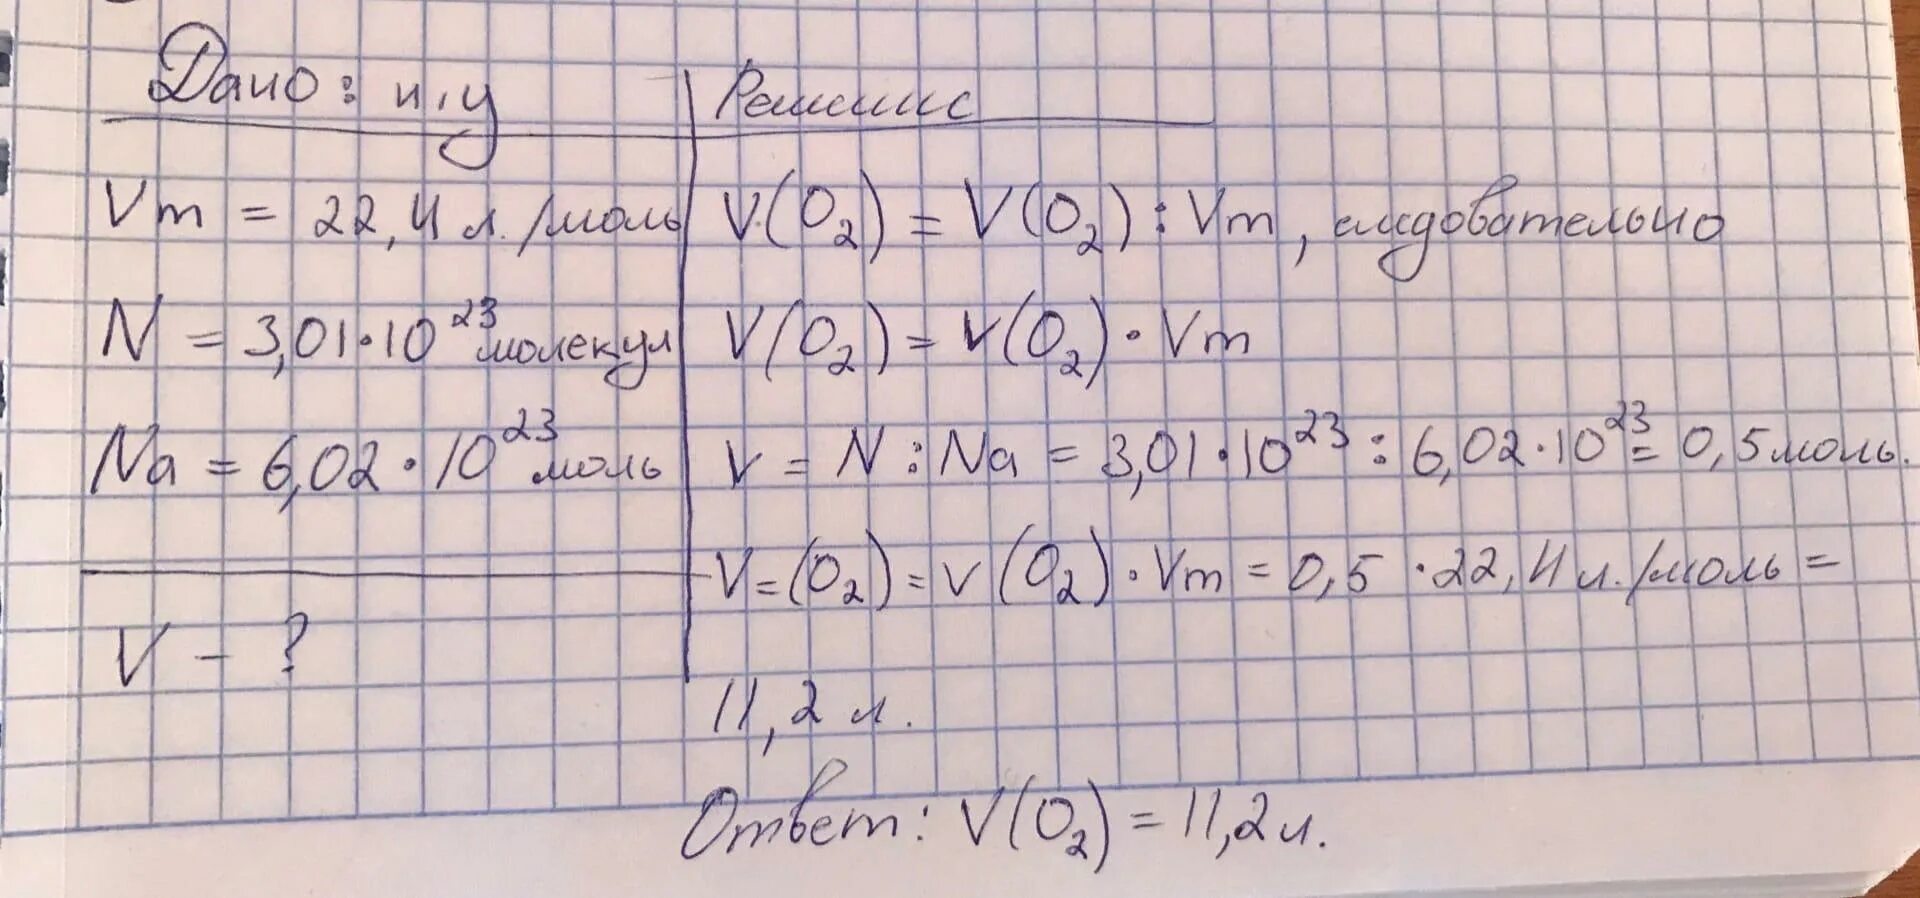 Дано: н,у
Vm = 22,4 л./моль
N = 3,01·10²³ молекул
Na = 6,02·10²³ моль
V - ?
Решение
V(O₂) = V(O₂) : Vm, следовательно
V(O₂) = V(O₂) · Vm
V = N : Na = 3,01·10²³ : 6,02·10²³ = 0,5 моль.
V=(O₂) = V(O₂) · Vm = 0,5 · 22,4 л./моль =
11,2 л.
Ответ: V(O₂) = 11,2 л.